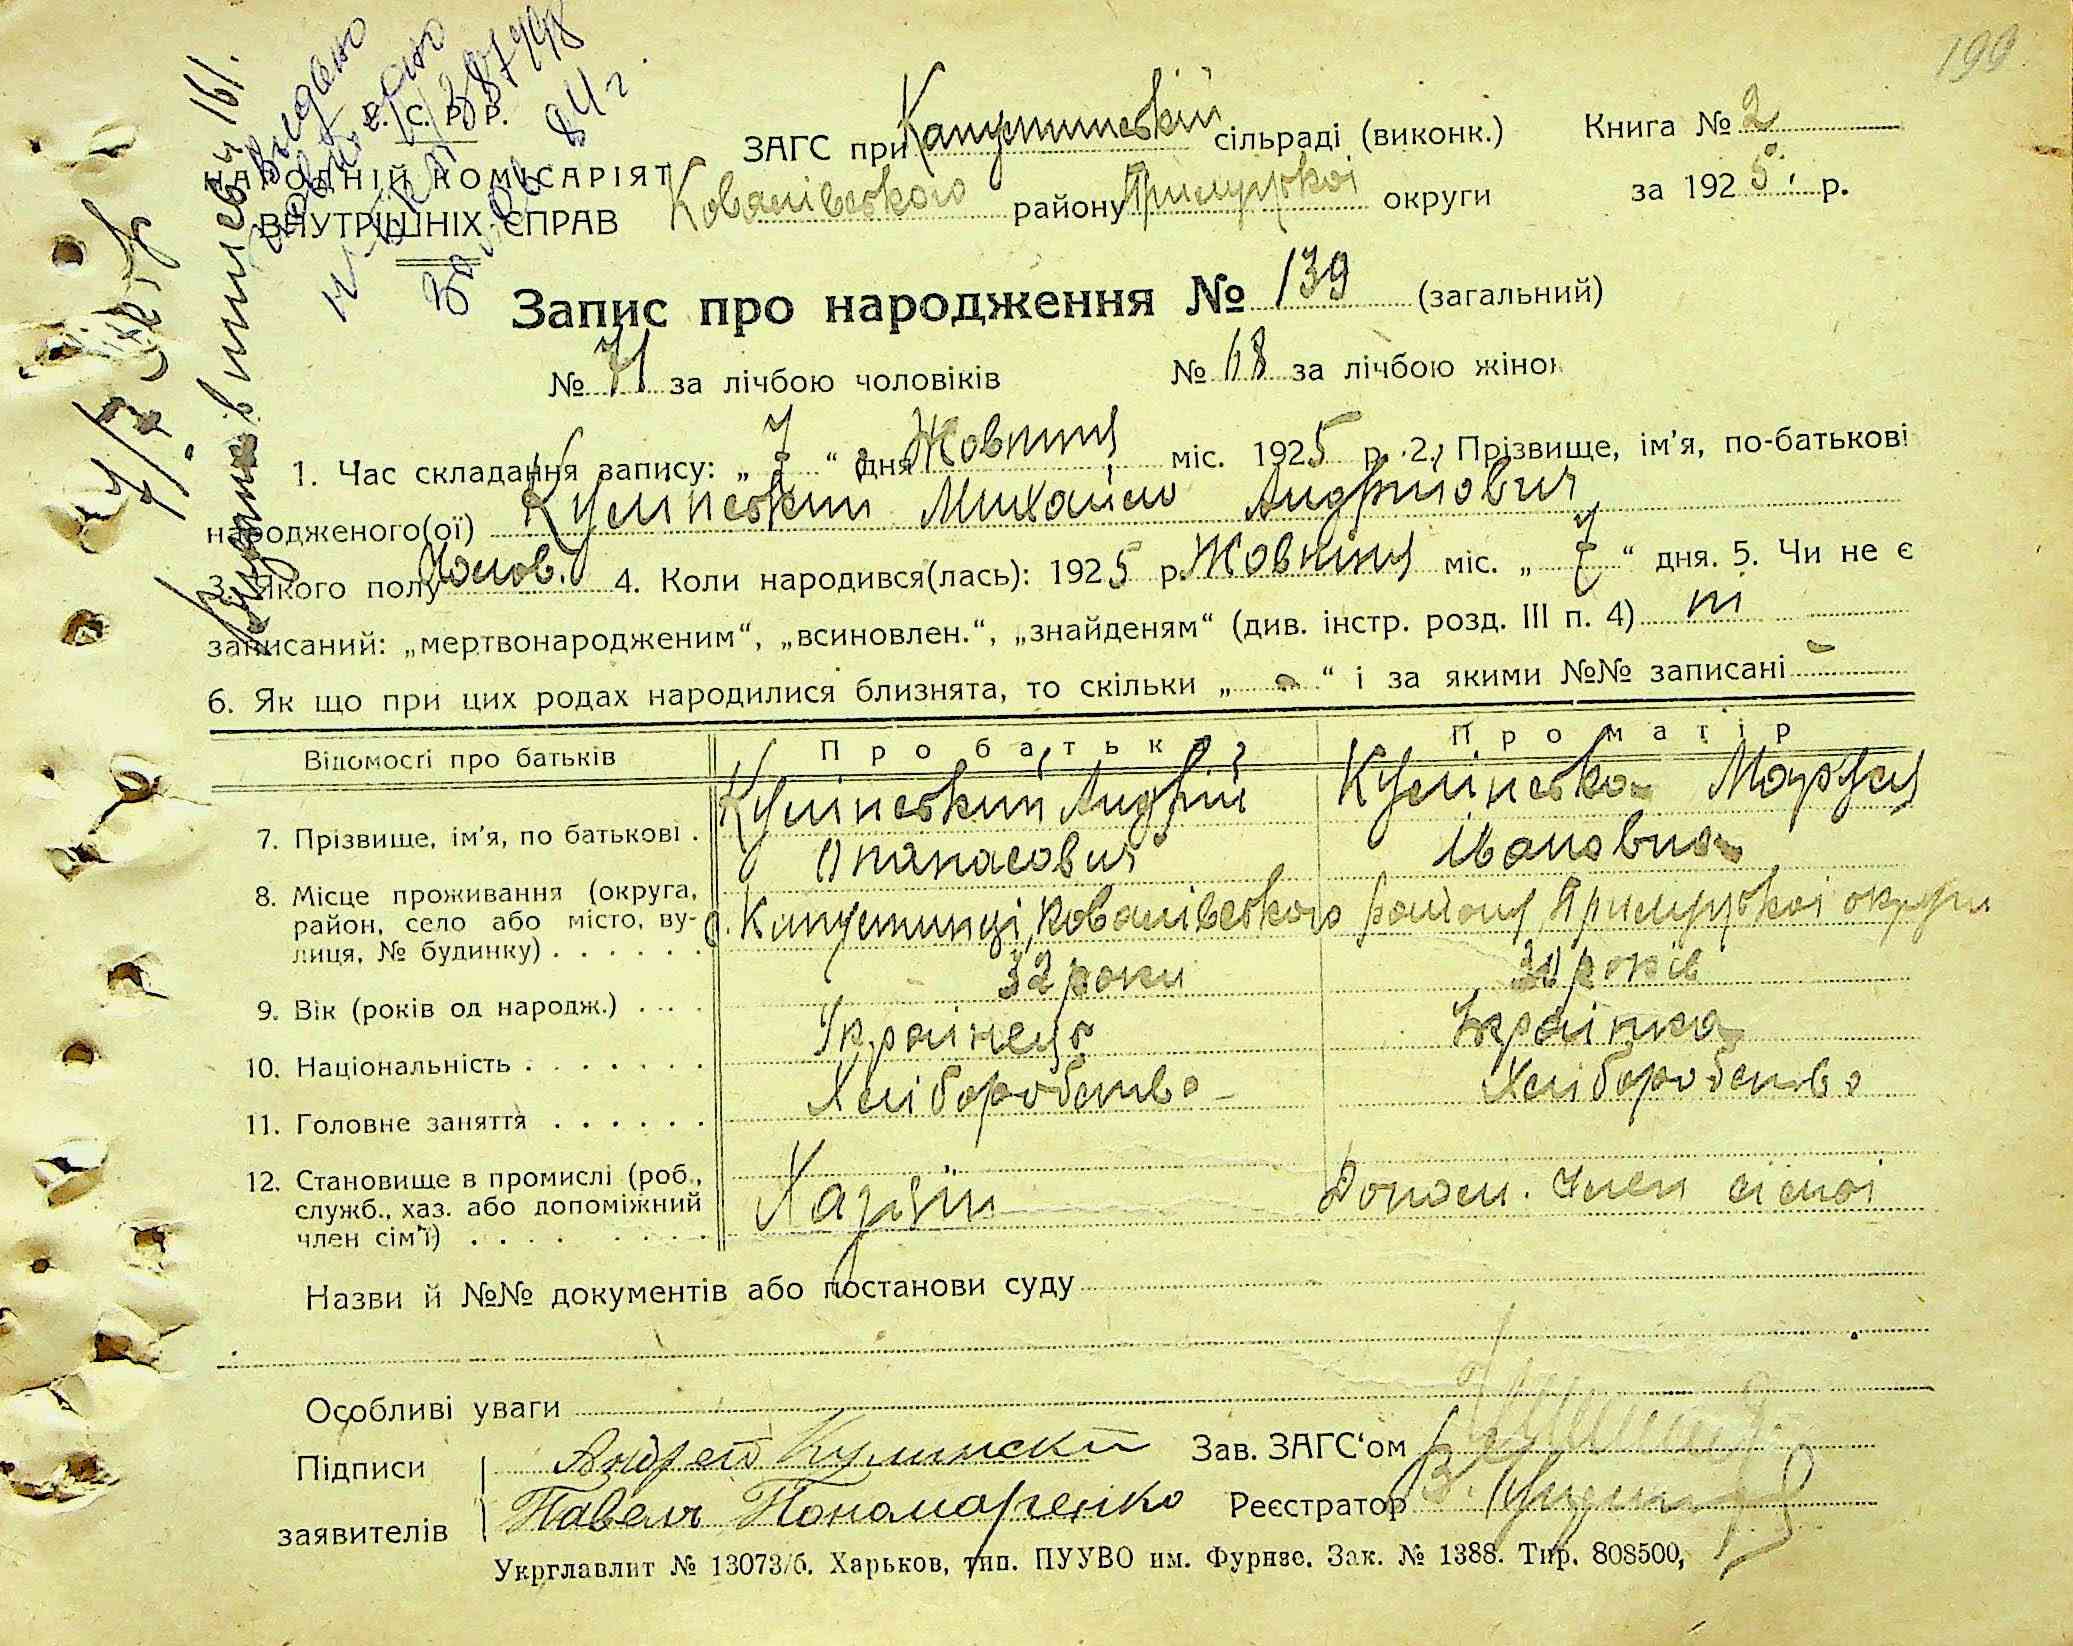 199
У. С. Р. Р.
НАРОДНІЙ КОМІСАРІЯТ
ВНУТРІШНІХ СПРАВ
ЗАГС при Капустинській сільраді (виконк.) Книга № 2
Ковалівського району Прилуцької округи за 1925 р.
Запис про народження № 139 (загальний)
№ 71 за лічбою чоловіків № 68 за лічбою жінок
1. Час складання запису: „ 7 “ дня Жовтня міс. 1925 р. 2. Прізвище, ім’я, по-батькові
народженого(ої) Кулінський Михайло Андрійович
3. Якого полу Чолов. 4. Коли народився(лась): 1925 р. Жовтня міс. „ 7 “ дня. 5. Чи не є
записаний: „мертвонародженим“, „всиновлен.“, „знайденям“ (див. інстр. розд. III п. 4) ні
6. Як що при цих родах народилися близнята, то скільки „ - “ і за якими №№ записані -
Відомості про батьків Про батька Про матір
7. Прізвище, ім’я, по батькові . Кулінський Андрій Кулінська Маруся
Опанасович Івановна
8. Місце проживання (округа, район, село або місто, вулиця, № будинку) . . . . . . с. Капустинці, Ковалівського району Прилуцької округи
9. Вік (років од народж.) . . . . 32 роки 30 років
10. Національність . . . . . . . Українець Українка
11. Головне заняття . . . . . . Хліборобство Хліборобство
12. Становище в промислі (роб., служб., хаз. або допоміжний член сім’ї) . . . . Хазяїн Допом. член сімї
Назви й №№ документів або постанови суду
Особливі уваги
Підписи Андрей Кулински Зав. ЗАГС‘ом
заявителів Павелъ Пономаренко Реєстратор
Укрглавлит № 13073/б. Харьков, тип. ПУУВО им. Фрунзе. Зак. № 1388. Тир. 808500,